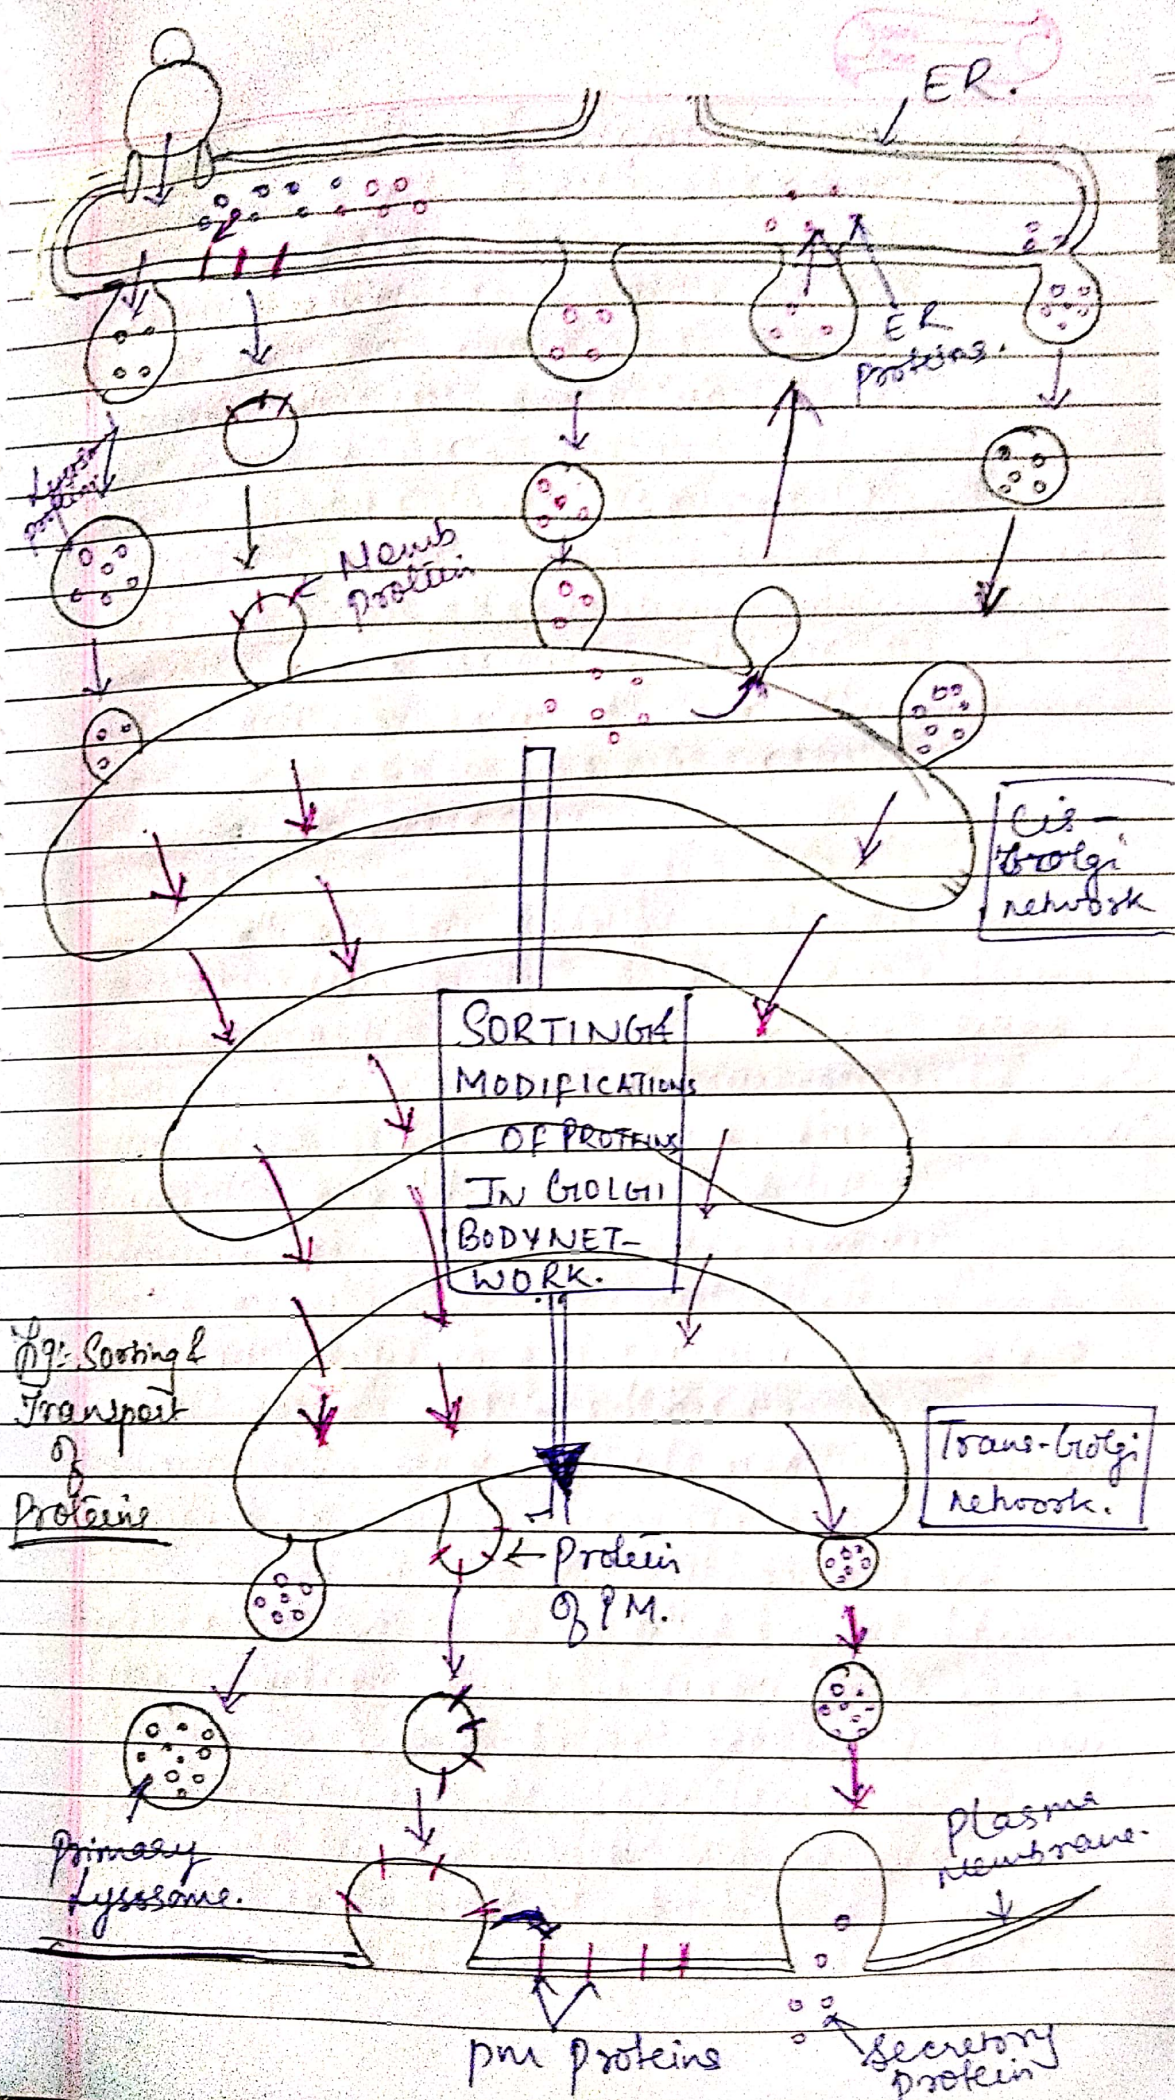 ER.
ER
proteins.
Memb
protein
Cis-
Golgi
network
SORTING &
MODIFICATIONS
OF PROTEINS
IN GOLGI
BODY NET-
WORK.
Fig:- Sorting &
Transport
of
Proteins
Trans-Golgi
network.
← Protein
of PM.
Primary
Lysosome.
Plasma
membrane.
PM Proteins
Secretory
protein